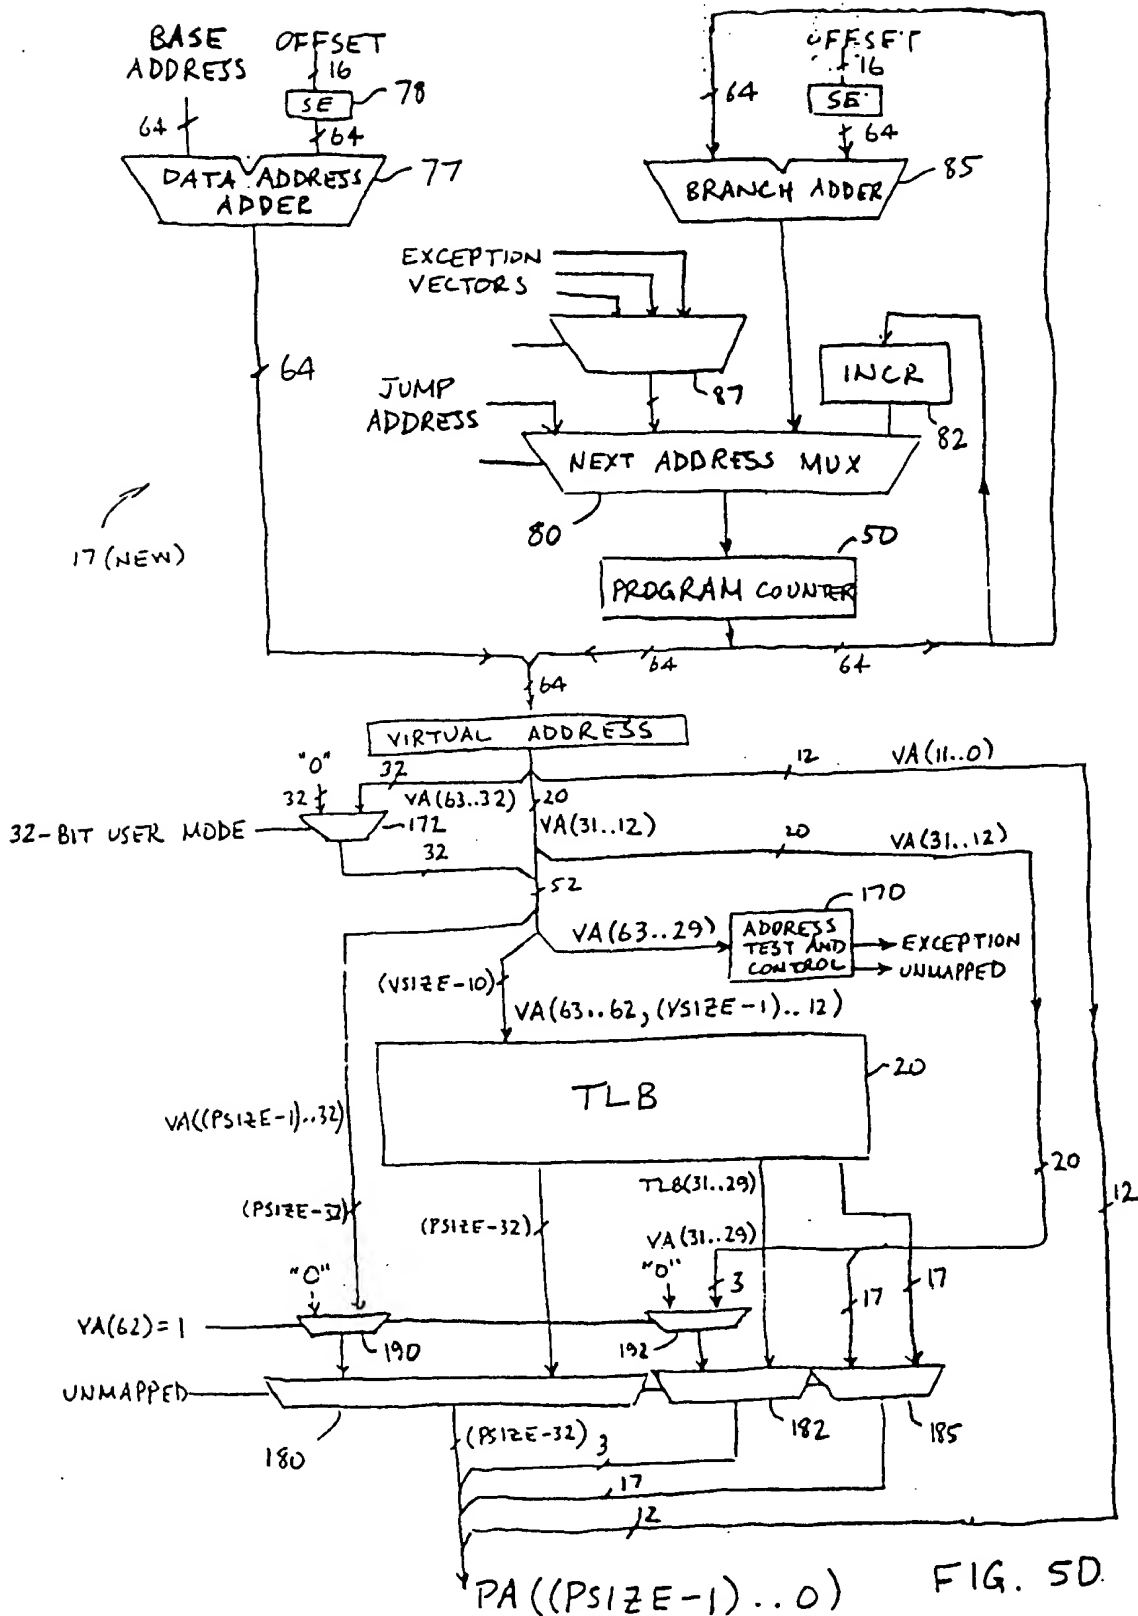 BASE
ADDRESS
OFFSET
16
SE
78
64
64
DATA ADDRESS
ADDER
77
OFFSET
16
64
SE
64
BRANCH ADDER
85
EXCEPTION
VECTORS
87
64
INCR
82
JUMP
ADDRESS
NEXT ADDRESS MUX
80
50
17 (NEW)
PROGRAM COUNTER
64
64
64
VIRTUAL ADDRESS
"0"
32
32
VA(63..32)
20
12
VA(11..0)
32-BIT USER MODE
172
VA(31..12)
20
VA(31..12)
32
52
170
VA(63..29)
ADDRESS
TEST AND
CONTROL
EXCEPTION
UNMAPPED
(VSIZE-10)
VA(63..62, (VSIZE-1)..12)
TLB
20
VA((PSIZE-1)..32)
20
12
TLB(31..29)
(PSIZE-32)
(PSIZE-32)
VA(31..29)
"0"
"0"
3
17
17
VA(62)=1
190
192
UNMAPPED
180
182
185
(PSIZE-32)
3
17
12
PA((PSIZE-1)..0)
FIG. 5D